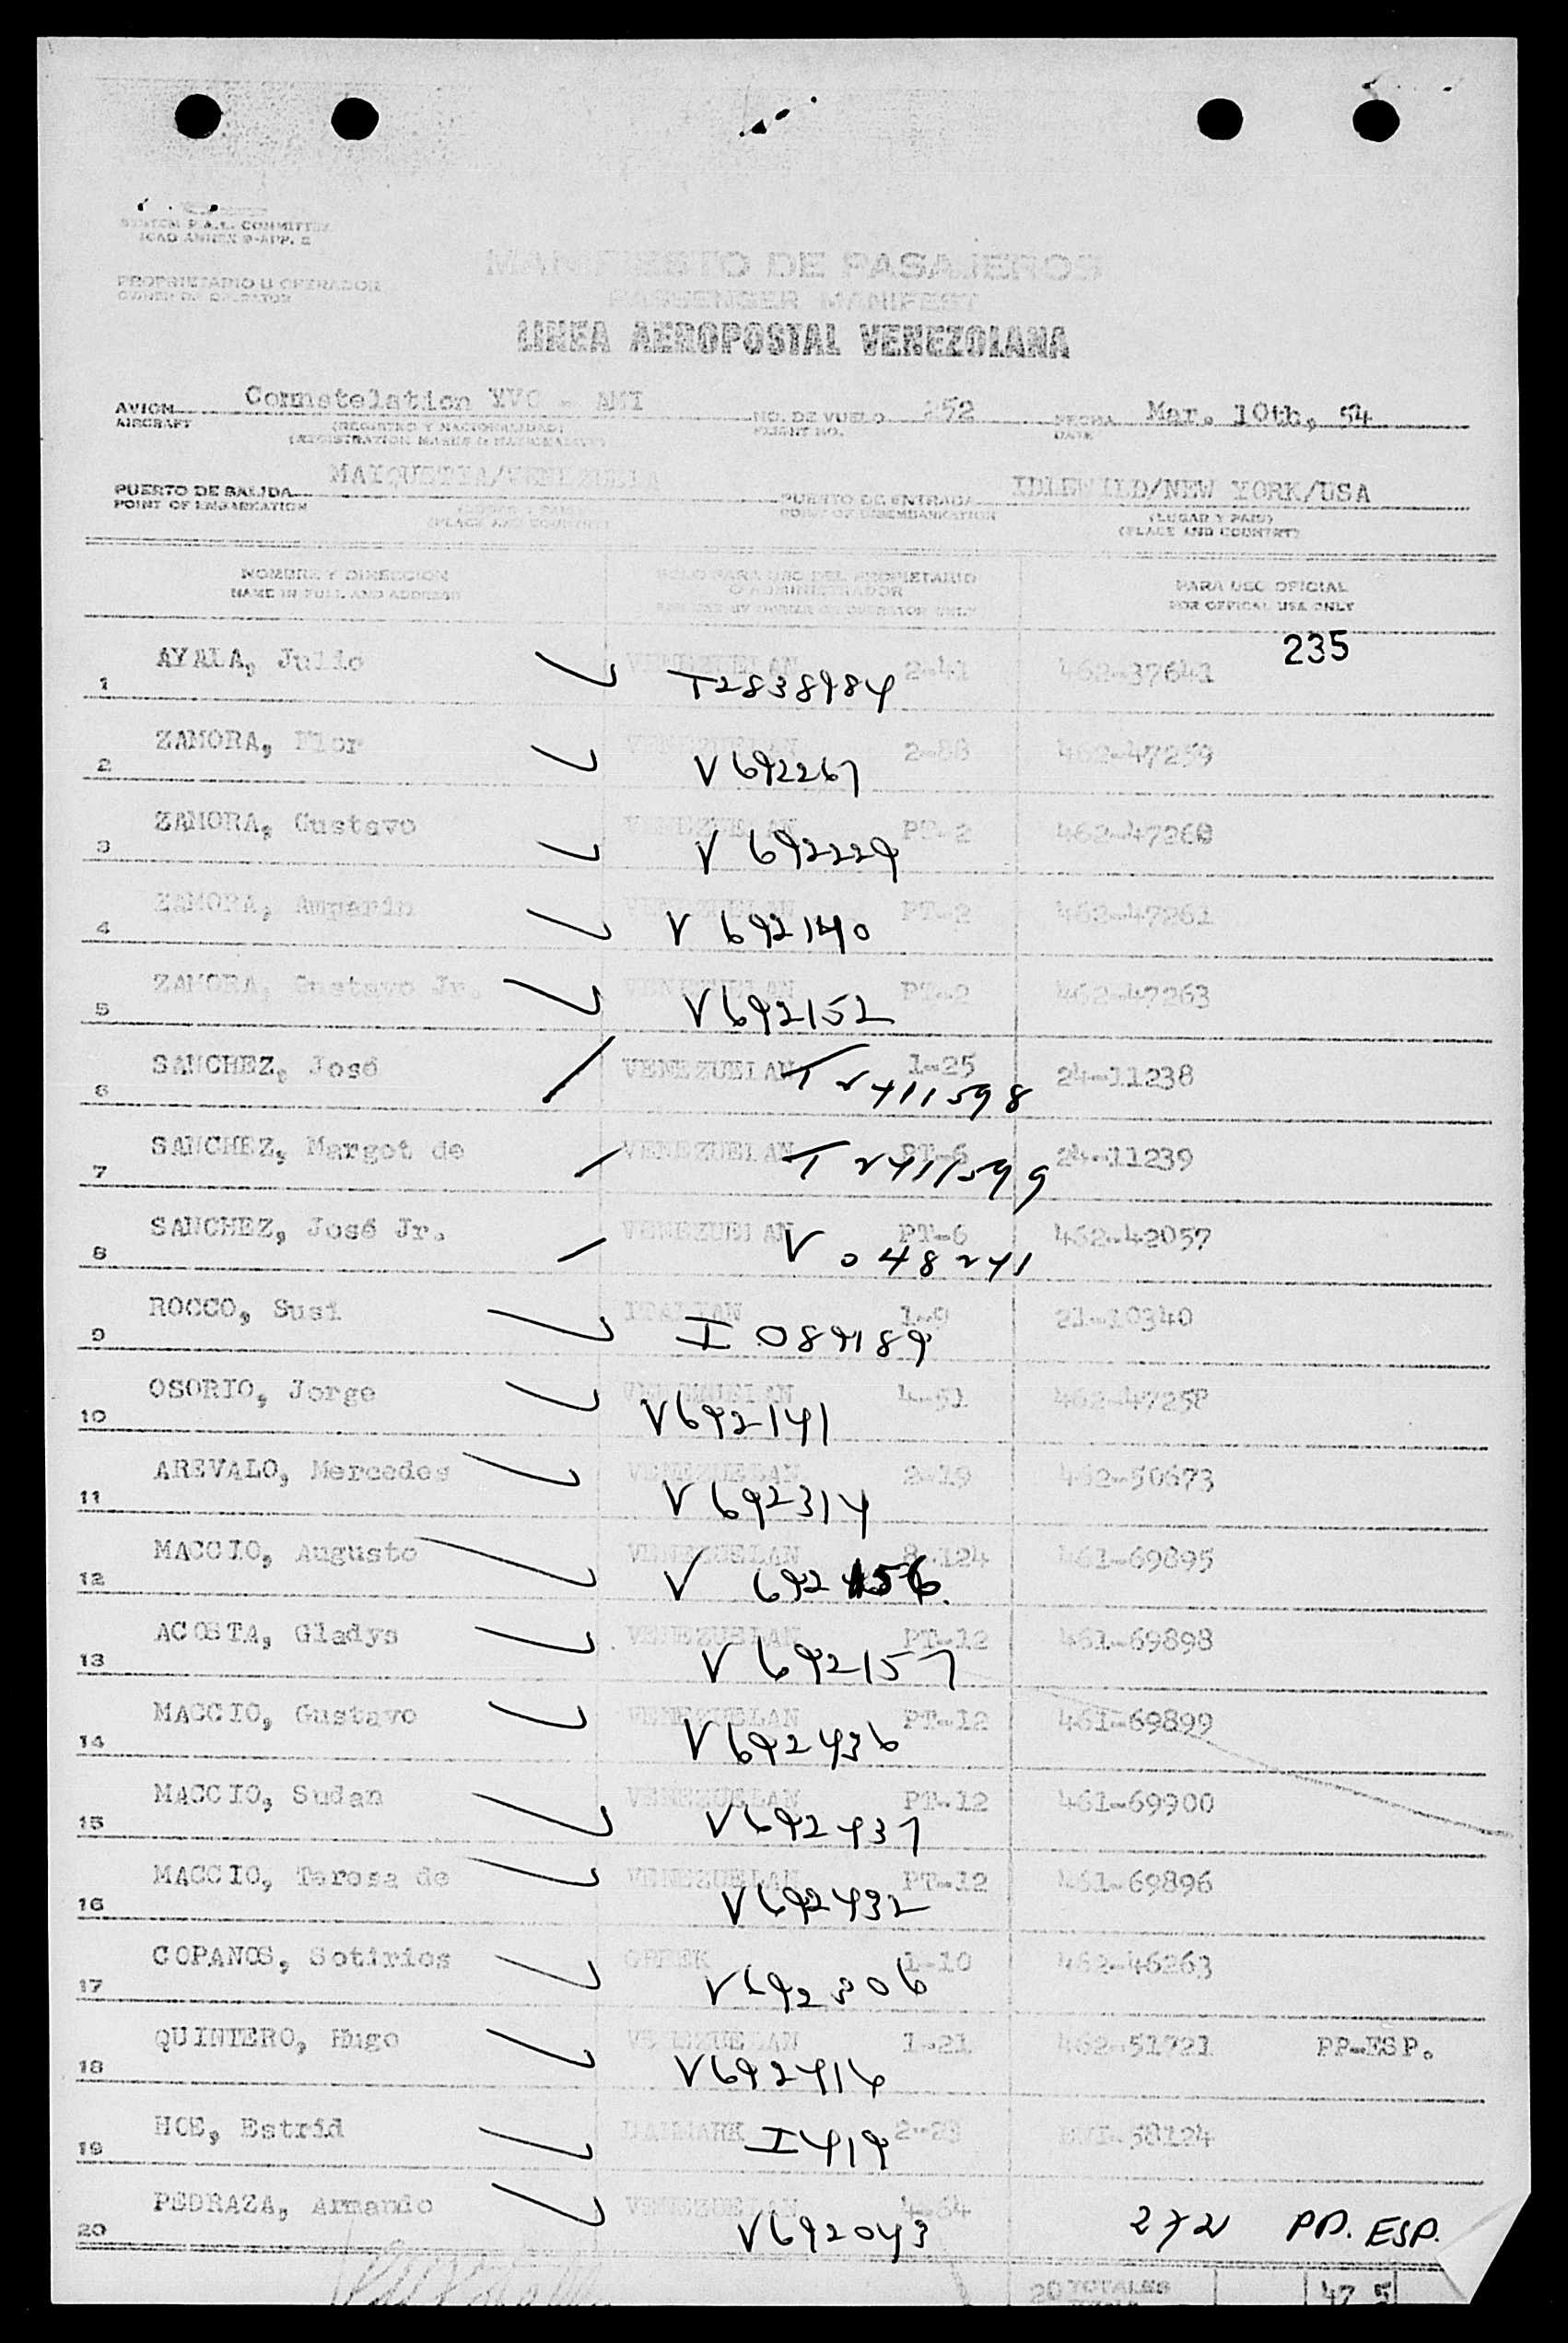 SYSTEM P.A.L. COMMITTEE
ICAO ANNEX 9-APP. 2
PROPRIETARIO U OPERADOR
OWNER OR OPERATOR
MANIFIESTO DE PASAJEROS
PASSENGER MANIFEST
LINEA AEROPOSTAL VENEZOLANA
AVION Connstelation YVC - AMI NO. DE VUELO 252 FECHA Mar. 10th, 54
AIRCRAFT (REGISTRO Y NACIONALIDAD) FLIGHT NO. DATE
(REGISTRATION MARKS & NATIONALITY)
PUERTO DE SALIDA MAIQUETIA/VENEZUELA PUERTO DE ENTRADA IDLEWILD/NEW YORK/USA
POINT OF EMBARKATION (LUGAR Y PAIS) POINT OF DISEMBARKATION (LUGAR Y PAIS)
(PLACE AND COUNTRY) (PLACE AND COUNTRY)
NOMBRE Y DIRECCION SOLO PARA USO DEL PROPIETARIO PARA USO OFICIAL
NAME IN FULL AND ADDRESS O ADMINISTRADOR FOR OFFICAL USE ONLY
FOR USE BY OWNER OR OPERATOR ONLY
235
1 AYALA, Julio VENEZUELAN 2-41 462-37641
T2838984
2 ZAMORA, Flor VENEZUELAN 2-88 462-47259
V692267
3 ZAMORA, Gustavo VENEZUELAN PT-2 462-47260
V 692229
4 ZAMORA, Amparin VENEZUELAN PT-2 462-47261
V 692140
5 ZAMORA, Gustavo Jr. VENEZUELAN PT-2 462-47263
V692152
6 SANCHEZ, José VENEZUELAN 1-25 24-11238
T 2411598
7 SANCHEZ, Margot de VENEZUELAN PT-6 24-11239
T 2411599
8 SANCHEZ, José Jr. VENEZUELAN PT-6 462-42057
V 048241
9 ROCCO, Susi ITALIAN 1-9 21-10340
I 089189
10 OSORIO, Jorge VENEZUELAN 4-51 462-47258
V692141
11 AREVALO, Mercedes VENEZUELAN 2-19 462-50673
V 692314
12 MACCIO, Augusto VENEZUELAN 8-124 461-69895
V 692156.
13 ACOSTA, Gladys VENEZUELAN PT-12 461-69898
V 692157
14 MACCIO, Gustavo VENEZUELAN PT-12 461-69899
V692436
15 MACCIO, Sudan VENEZUELAN PT-12 461-69900
V692437
16 MACCIO, Teresa de VENEZUELAN PT-12 461-69896
V692432
17 COPANOS, Sotirios GREEK 1-10 462-46263
V692306
18 QUINTERO, Hugo VENEZUELAN 1-21 462-51721 PP-ESP.
V692416
19 HOE, Estrid DANMARK 2-23 58124
I419
20 PEDRAZA, Armando VENEZUELAN 4-64
V692043 PP. ESP.
20 TOTALES 47 5